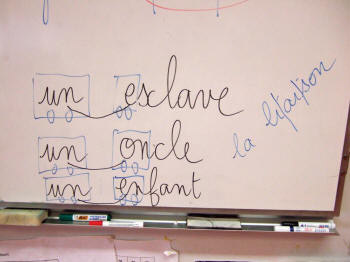 un esclave
un oncle
un enfant
la liaison